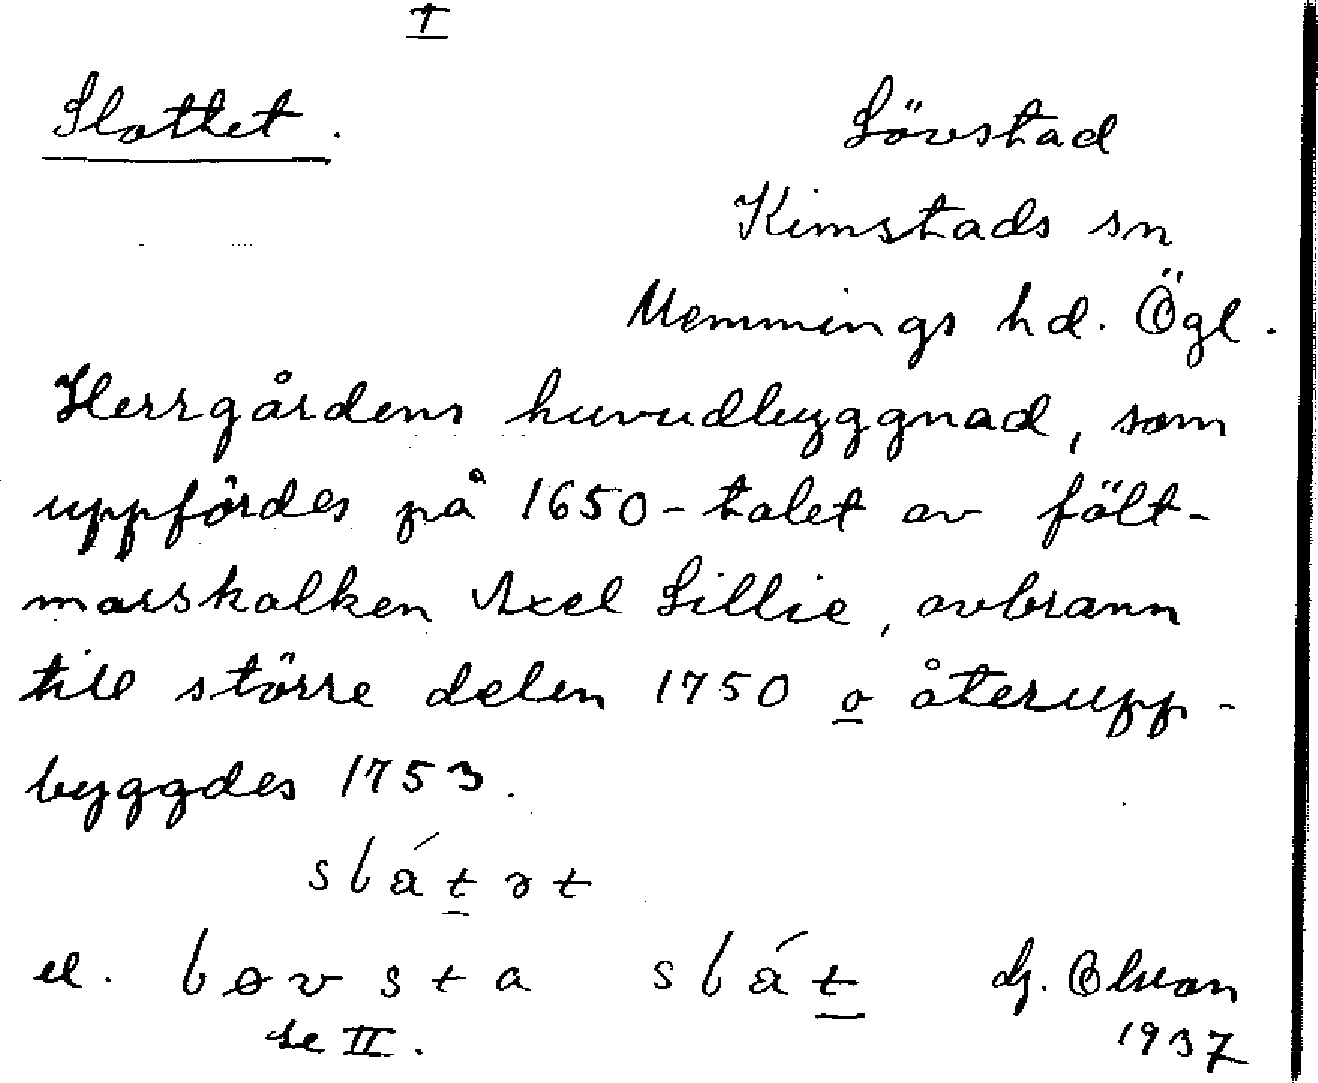 I
Slottet.
Lövstad
Kimstads sn
Memmings hd. Ögl.
Herrgårdens huvudbyggnad, som
uppfördes på 1650-talet av fält-
marskalken Axel Lillie, avbrann
till större delen 1750 o återupp-
byggdes 1753.
slåtət
el. løvsta slåt
se II.
1937